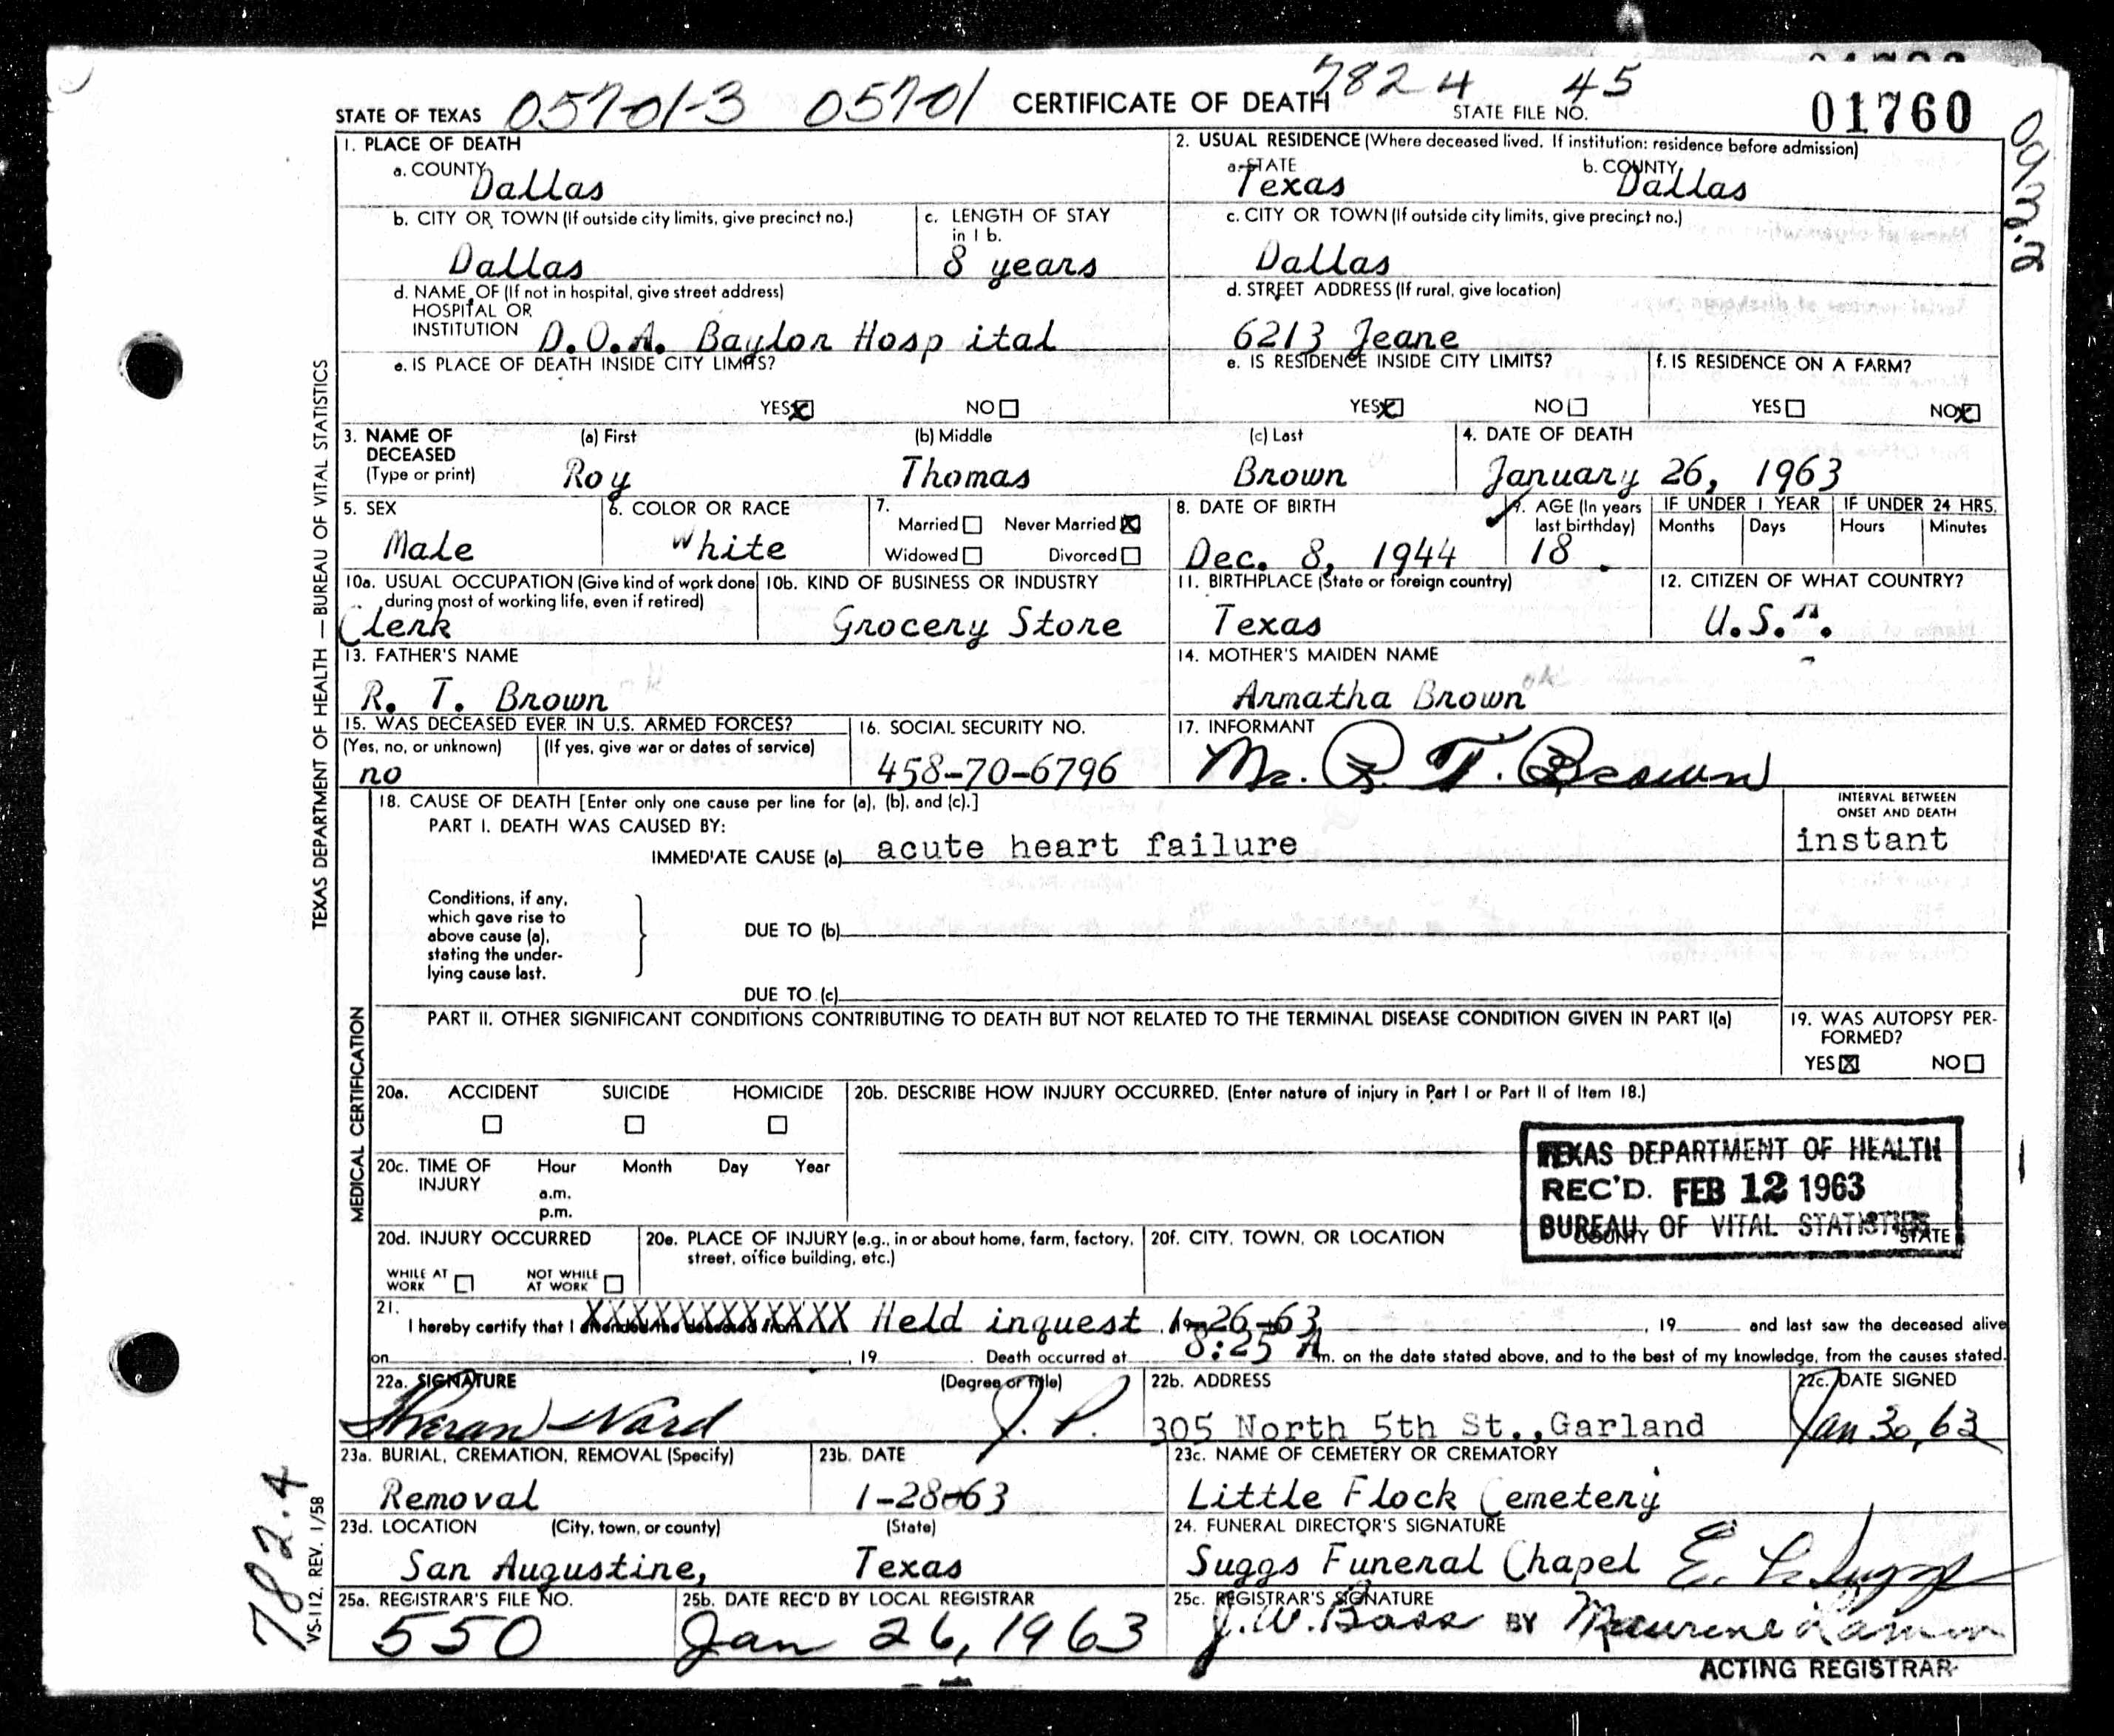 7824 45
STATE OF TEXAS 05701-3 05701 CERTIFICATE OF DEATH STATE FILE NO. 01760
1. PLACE OF DEATH
a. COUNTY
Dallas
2. USUAL RESIDENCE (Where deceased lived. If institution: residence before admission)
a. STATE
Texas
b. COUNTY
Dallas
b. CITY OR TOWN (If outside city limits, give precinct no.)
Dallas
c. LENGTH OF STAY
in 1 b.
8 years
c. CITY OR TOWN (If outside city limits, give precinct no.)
Dallas
d. NAME OF (If not in hospital, give street address)
HOSPITAL OR
INSTITUTION D.O.A. Baylor Hosp ital
d. STREET ADDRESS (If rural, give location)
6213 Jeane
e. IS PLACE OF DEATH INSIDE CITY LIMITS?
YES X NO
e. IS RESIDENCE INSIDE CITY LIMITS?
YES X NO
f. IS RESIDENCE ON A FARM?
YES NO X
3. NAME OF
DECEASED
(Type or print)
(a) First
Roy
(b) Middle
Thomas
(c) Last
Brown
4. DATE OF DEATH
January 26, 1963
5. SEX
Male
6. COLOR OR RACE
White
7.
Married Never Married X
Widowed Divorced
8. DATE OF BIRTH
Dec. 8, 1944
9. AGE (In years
last birthday)
18
IF UNDER 1 YEAR
Months Days
IF UNDER 24 HRS.
Hours Minutes
10a. USUAL OCCUPATION (Give kind of work done
during most of working life, even if retired)
Clerk
10b. KIND OF BUSINESS OR INDUSTRY
Grocery Store
11. BIRTHPLACE (State or foreign country)
Texas
12. CITIZEN OF WHAT COUNTRY?
U.S.A.
13. FATHER'S NAME
R. T. Brown
14. MOTHER'S MAIDEN NAME
Armatha Brown
15. WAS DECEASED EVER IN U.S. ARMED FORCES?
(Yes, no, or unknown) (If yes, give war or dates of service)
no
16. SOCIAL SECURITY NO.
458-70-6796
17. INFORMANT
Mr. R. T. Brown
18. CAUSE OF DEATH [Enter only one cause per line for (a), (b), and (c).]
PART I. DEATH WAS CAUSED BY:
IMMEDIATE CAUSE (a) acute heart failure
INTERVAL BETWEEN
ONSET AND DEATH
instant
Conditions, if any,
which gave rise to
above cause (a),
stating the under-
lying cause last.
DUE TO (b)
DUE TO (c)
PART II. OTHER SIGNIFICANT CONDITIONS CONTRIBUTING TO DEATH BUT NOT RELATED TO THE TERMINAL DISEASE CONDITION GIVEN IN PART I(a)
19. WAS AUTOPSY PER-
FORMED?
YES X NO
20a. ACCIDENT SUICIDE HOMICIDE
20b. DESCRIBE HOW INJURY OCCURRED. (Enter nature of injury in Part I or Part II of Item 18.)
20c. TIME OF
INJURY
Hour Month Day Year
a.m.
p.m.
TEXAS DEPARTMENT OF HEALTH
REC'D. FEB 12 1963
BUREAU OF VITAL STATISTICS
20d. INJURY OCCURRED
WHILE AT
WORK
NOT WHILE
AT WORK
20e. PLACE OF INJURY (e.g., in or about home, farm, factory,
street, office building, etc.)
20f. CITY, TOWN, OR LOCATION COUNTY STATE
21.
I hereby certify that I XXXXXXXXXXXX Held inquest 1-26-63, 19 and last saw the deceased alive
on , 19 . Death occurred at 8:25 A m. on the date stated above, and to the best of my knowledge, from the causes stated.
22a. SIGNATURE (Degree or title)
Theran Ward J. P.
22b. ADDRESS
305 North 5th St.,Garland
22c. DATE SIGNED
Jan 30, 63
23a. BURIAL, CREMATION, REMOVAL (Specify)
Removal
23b. DATE
1-28-63
23c. NAME OF CEMETERY OR CREMATORY
Little Flock Cemetery
23d. LOCATION (City, town, or county) (State)
San Augustine, Texas
24. FUNERAL DIRECTOR'S SIGNATURE
Suggs Funeral Chapel E. L. Suggs
25a. REGISTRAR'S FILE NO.
550
25b. DATE REC'D BY LOCAL REGISTRAR
Jan 26, 1963
25c. REGISTRAR'S SIGNATURE
J. W. Bass BY Maurene
ACTING REGISTRAR
TEXAS DEPARTMENT OF HEALTH — BUREAU OF VITAL STATISTICS
MEDICAL CERTIFICATION
VS-112, REV. 1/58
782.4